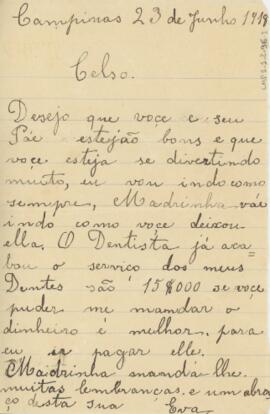 Campinas 23 de Junho 1918
Celso.
Desejo que voce e seu
Páe estejão bons e que
voce esteja se divertindo
muito, eu vou indo como
sempre, Madrinha vai
indo como voce deixou
ella. O Dentista já aca=
bou o serviço dos meus
Dentes são 15$000 se voce
puder me mandar o
dinheiro é melhor, para
eu ir pagar elle.
Madrinha manda lhe
muitas lembranças e um abra
ço desta sua Eva